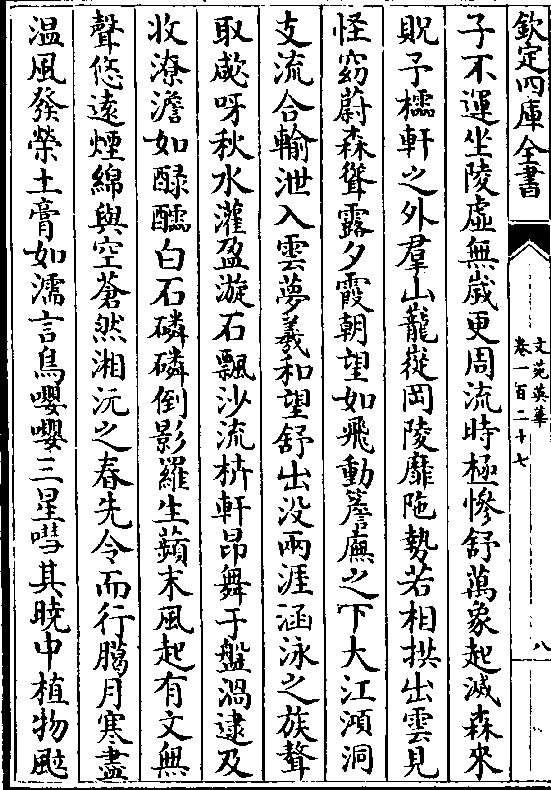 欽定四庫全書
文苑英華
卷一百二十七
八
子不運坐陵虛無歲更周流時極慘舒萬象起滅森來
貺予櫺軒之外羣山巃嵸岡陵靡陁勢若相拱出雲見
怪窈蔚森聳露夕霞朝望如飛動簷廡之下大江澒洞
支流合輸泄入雲夢羲和望舒出没兩涯涵泳之族聱
取㰹呀秋水灌盈漩石飄沙流枿軒昂舞于盤渦逮及
收潦澹如醁醹白石磷磷倒影羅生蘋末風起有文無
聲悠遠煙綿與空蒼然湘沅之春先令而行臈月寒盡
温風發榮土膏如濡言鳥嚶嚶三星嘒其曉中植物颭